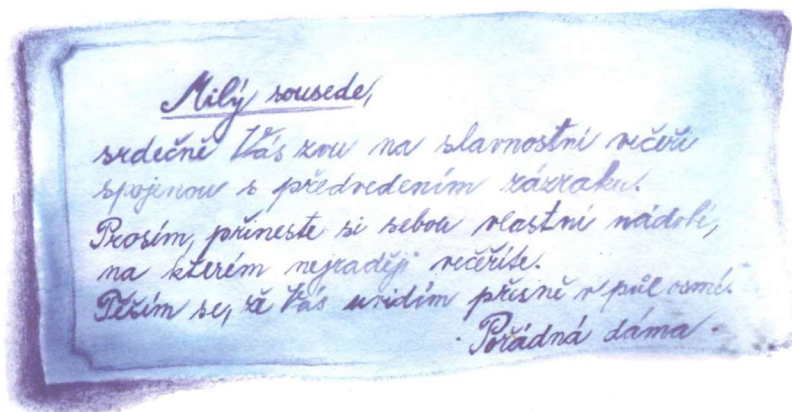 Milý sousede,
srdečně Vás zvu na slavnostní večeři
spojenou s předvedením zázraku.
Prosím, přineste si sebou vlastní nádobí,
na kterém nejraději večeříte.
Těším se, že Vás uvidím přesně v půl osmé.
Pořádná dáma.